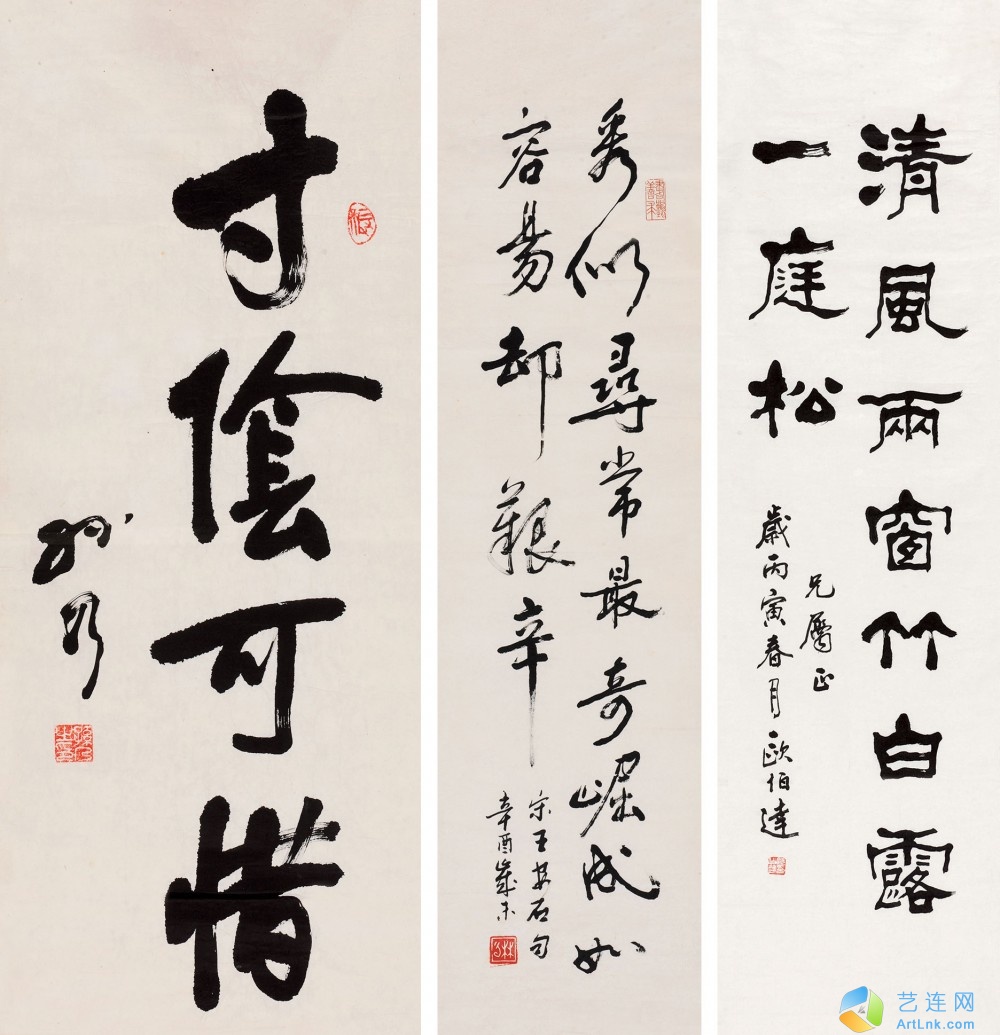 清風兩窗竹白露
一庭松
兄屬正
歲丙寅春月歐伯達
看似尋常最奇崛成如
容易却艱辛
宋王安石句
辛酉歲末
寸陰可惜
艺连网
ArtLnk.com